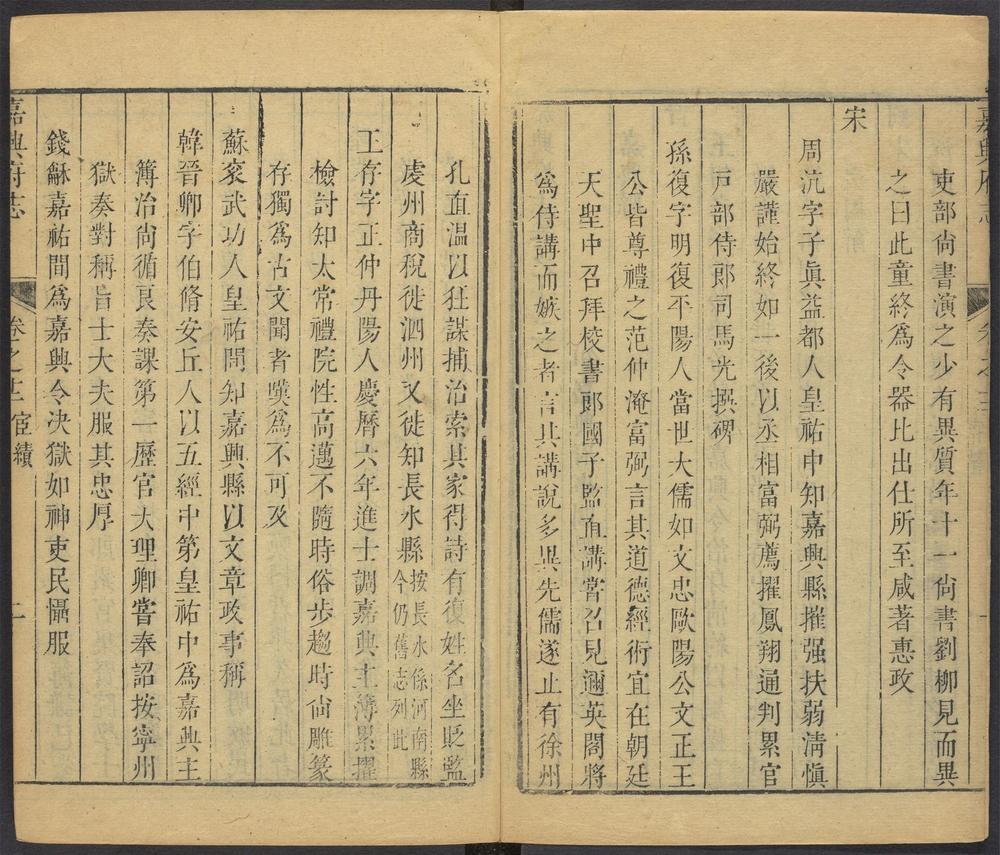 嘉興府志
吏部尚書演之少有異質年十一尚書劉柳見而異
之曰此童終爲令器比出仕所至咸著惠政
宋
周沆字子眞益都人皇祐中知嘉興縣摧强扶弱淸愼
嚴謹始終如一後以丞相富弼薦擢鳳翔通判累官
戸部侍郎司馬光撰碑
孫復字明復平陽人當世大儒如文忠歐陽公文正王
公皆尊禮之范仲淹富弼言其道德經術宜在朝廷
天聖中召拜校書郎國子監直講嘗召見邇英閣將
爲侍講而嫉之者言其講說多異先儒遂止有徐州
孔直温以狂謀捕治索其家得詩有復姓名坐貶監
虔州商稅徙泗州又徙知長水縣按長水係河南縣今仍舊志列此
王存字正仲丹陽人慶曆六年進士調嘉興主簿累擢
檢討知太常禮院性高邁不隨時俗步趨時尙雕篆
存獨爲古文聞者嘆爲不可及
蘇衮武功人皇祐間知嘉興縣以文章政事稱
韓晉卿字伯脩安丘人以五經中第皇祐中爲嘉興主
簿治尙循良奏課第一歷官大理卿嘗奉詔按寧州
獄奏對稱旨士大夫服其忠厚
錢龢嘉祐間爲嘉興令決獄如神吏民懾服
嘉興府志 卷之十二 宦績 二